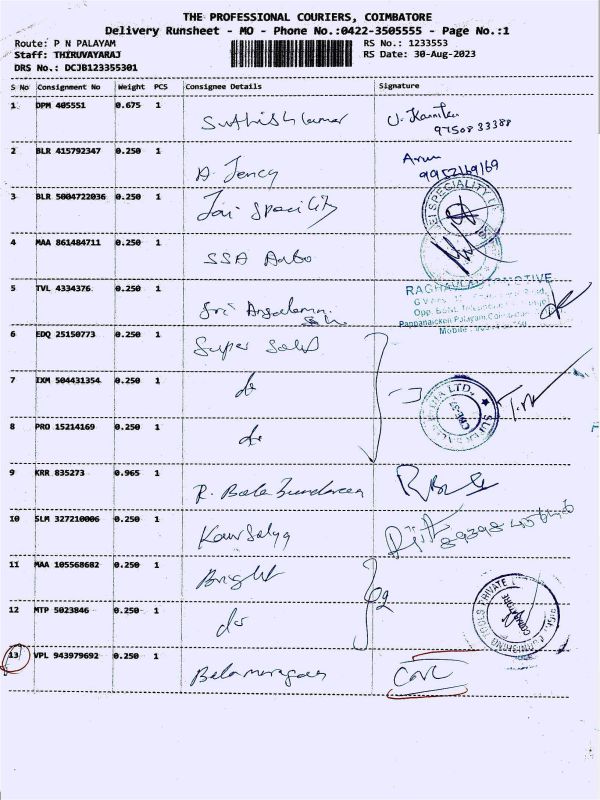 THE PROFESSIONAL COURIERS, COIMBATORE
Delivery Runsheet - MO - Phone No.:0422-3505555 - Page No.:1
Route: P N PALAYAM RS No.: 1233553
Staff: THIRUVAYARAJ RS Date: 30-Aug-2023
DRS No.: DCJB123355301
S No Consignment No Weight PCS Consignee Details Signature
1 DPM 405551 0.675 1
97508 33388
2 BLR 415792347 0.250 1 A Jency
3 BLR 5004722036 0.250 1 Jai Speciality
4 MAA 861484711 0.250 1 SSA Auto
5 TVL 4334376 0.250 1 Sri
Pappanaicken Palayam, Coimbatore
Mobile
6 EDQ 25150773 0.250 1 Super Sales
7 IXM 504431354 0.250 1 do
8 PRO 15214169 0.250 1 do
9 KRR 835273 0.965 1 R. Bala Sundaram
10 SLM 327210006 0.250 1 Kousalya
11 MAA 105568682 0.250 1 Bright
12 MTP 5023846 0.250 1 do
13 VPL 943979692 0.250 1 Balamurugan